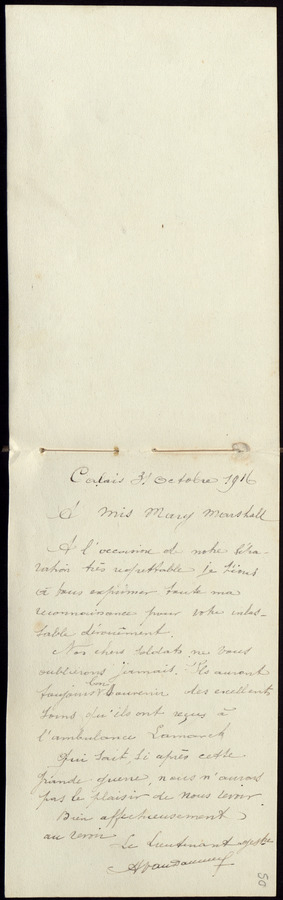 Calais 31 octobre 1916
À Mis Mary Marshall
À l'occasion de notre sépa-
ration très regrettable je tiens
à vous exprimer toute ma
reconnaissance pour votre inlas-
sable dévouement.
Nos chers soldats ne vous
oublierons jamais. Ils auront
toujours bon souvenir des excellents
soins qu'ils ont reçus à
l'ambulance Lamarck
Qui sait, si après cette
grande guerre, nous n'aurons
pas le plaisir de nous revoir.
Bien affectueusement
au revoir
Le Lieutenant
50